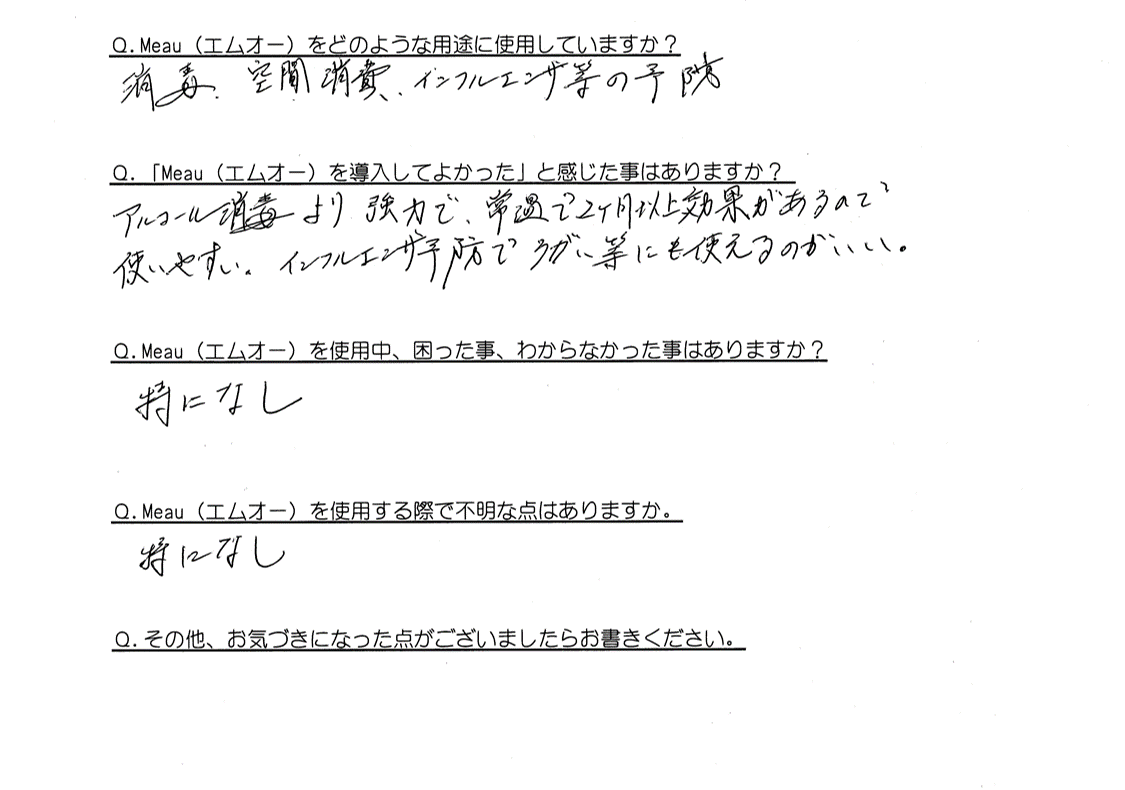 Q.Meau（エムオー）をどのような用途に使用していますか？
消毒、空間消費、インフルエンザ等の予防
Q.「Meau（エムオー）を導入してよかった」と感じた事はありますか？
アルコール消毒より強力で、常温で2ヶ月以上効果があるので
使いやすい。インフルエンザ予防でうがい等にも使えるのがいい。
Q.Meau（エムオー）を使用中、困った事、わからなかった事はありますか？
特になし
Q.Meau（エムオー）を使用する際で不明な点はありますか。
特になし
Q.その他、お気づきになった点がございましたらお書きください。